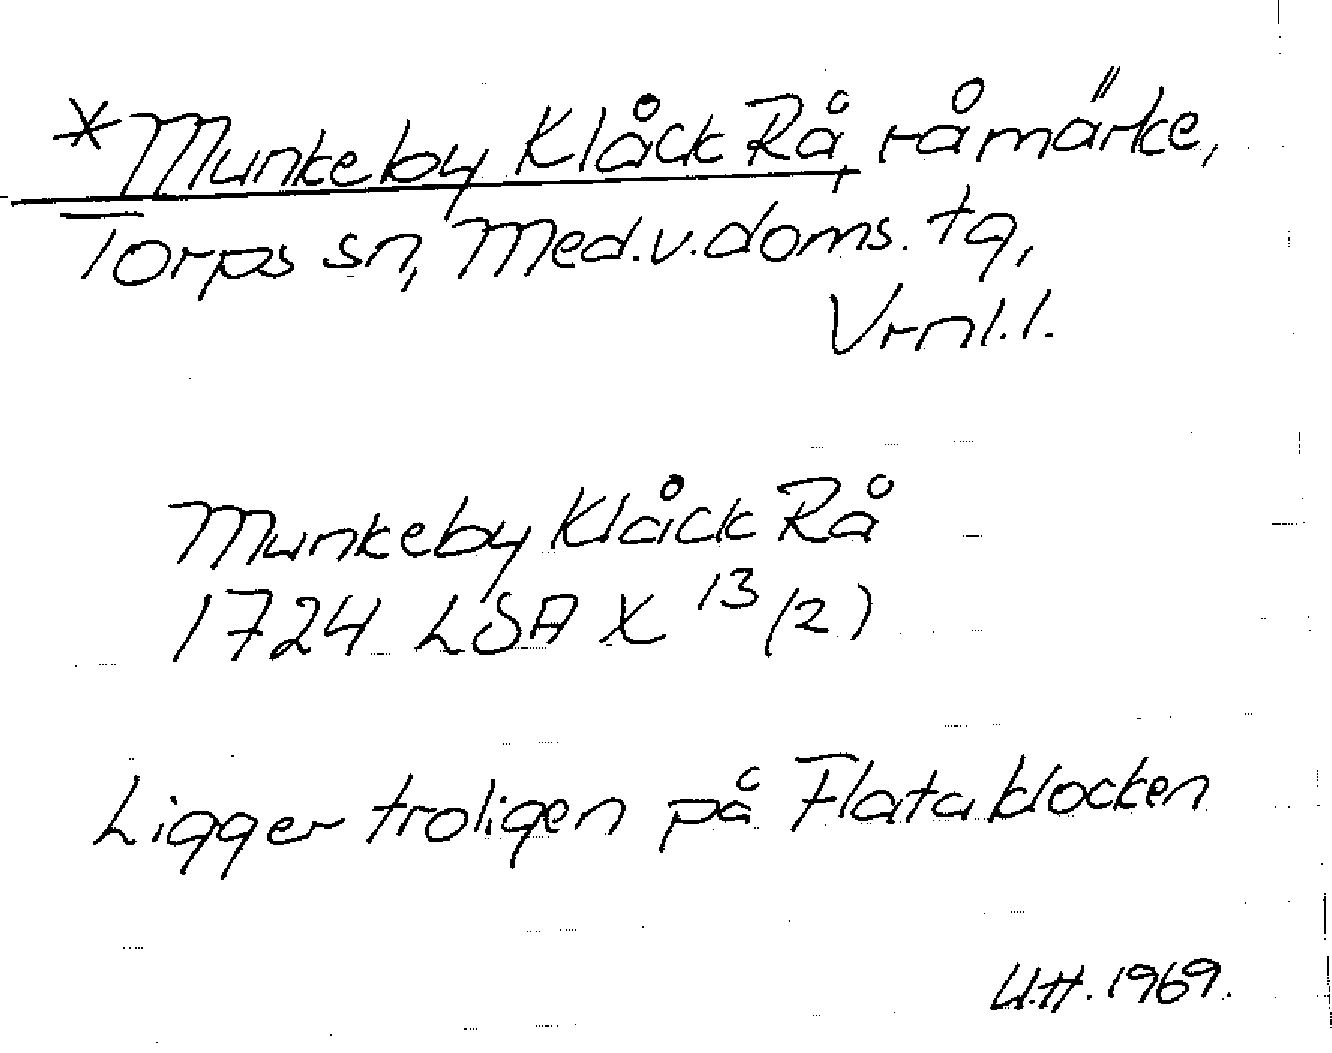 *Munkeby Klåck Rå, råmärke,
Torps sn, Med.v.doms. tg,
Vrml.l.
Munkeby Klåck Rå
1724 LSA X 13 (2)
Ligger troligen på Flataklocken
U.H. 1969.